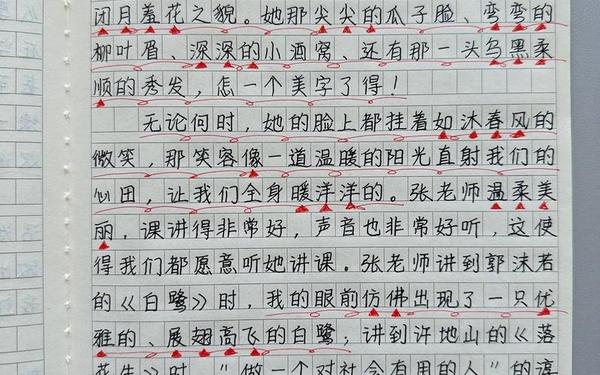 闭月羞花之貌。她那尖尖的瓜子脸、弯弯的
柳叶眉、深深的小酒窝、还有那一头乌黑柔
顺的秀发，怎一个美字了得！
无论何时，她的脸上都挂着如沐春风的
微笑，那笑容像一道温暖的阳光直射我们的
心田，让我们全身暖洋洋的。张老师温柔美
丽，课讲得非常好，声音也非常好听，这使
得我们都愿意听她讲课。张老师讲到郭沫若
的《白鹭》时，我的眼前仿佛出现了一只优
雅的、展翅高飞的白鹭；讲到许地山的《落
花生》时，“做一个对社会有用的人”的谆